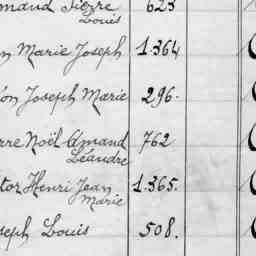 mand Pierre 623
Louis
n Marie Joseph 1.364
on Joseph Marie 296.
rre Noël Amand 762
Léandre
tor Henri Jean 1.365.
Marie
seph Louis 508.